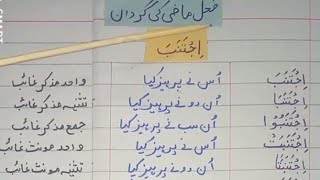 فعل ماضی کی گردان
اِجْتَنَبَ
اِجْتَنَبَ اُس نے پرہیز کیا واحد مذکر غائب
اِجْتَنَبَا اُن دو نے پرہیز کیا تثنیہ مذکر غائب
اِجْتَنَبُوْا اُن سب نے پرہیز کیا جمع مذکر غائب
اِجْتَنَبَتْ اُس نے پرہیز کیا واحد مونث غائب
اِجْتَنَبَتَا اُن دو نے پرہیز کیا تثنیہ مونث غائب